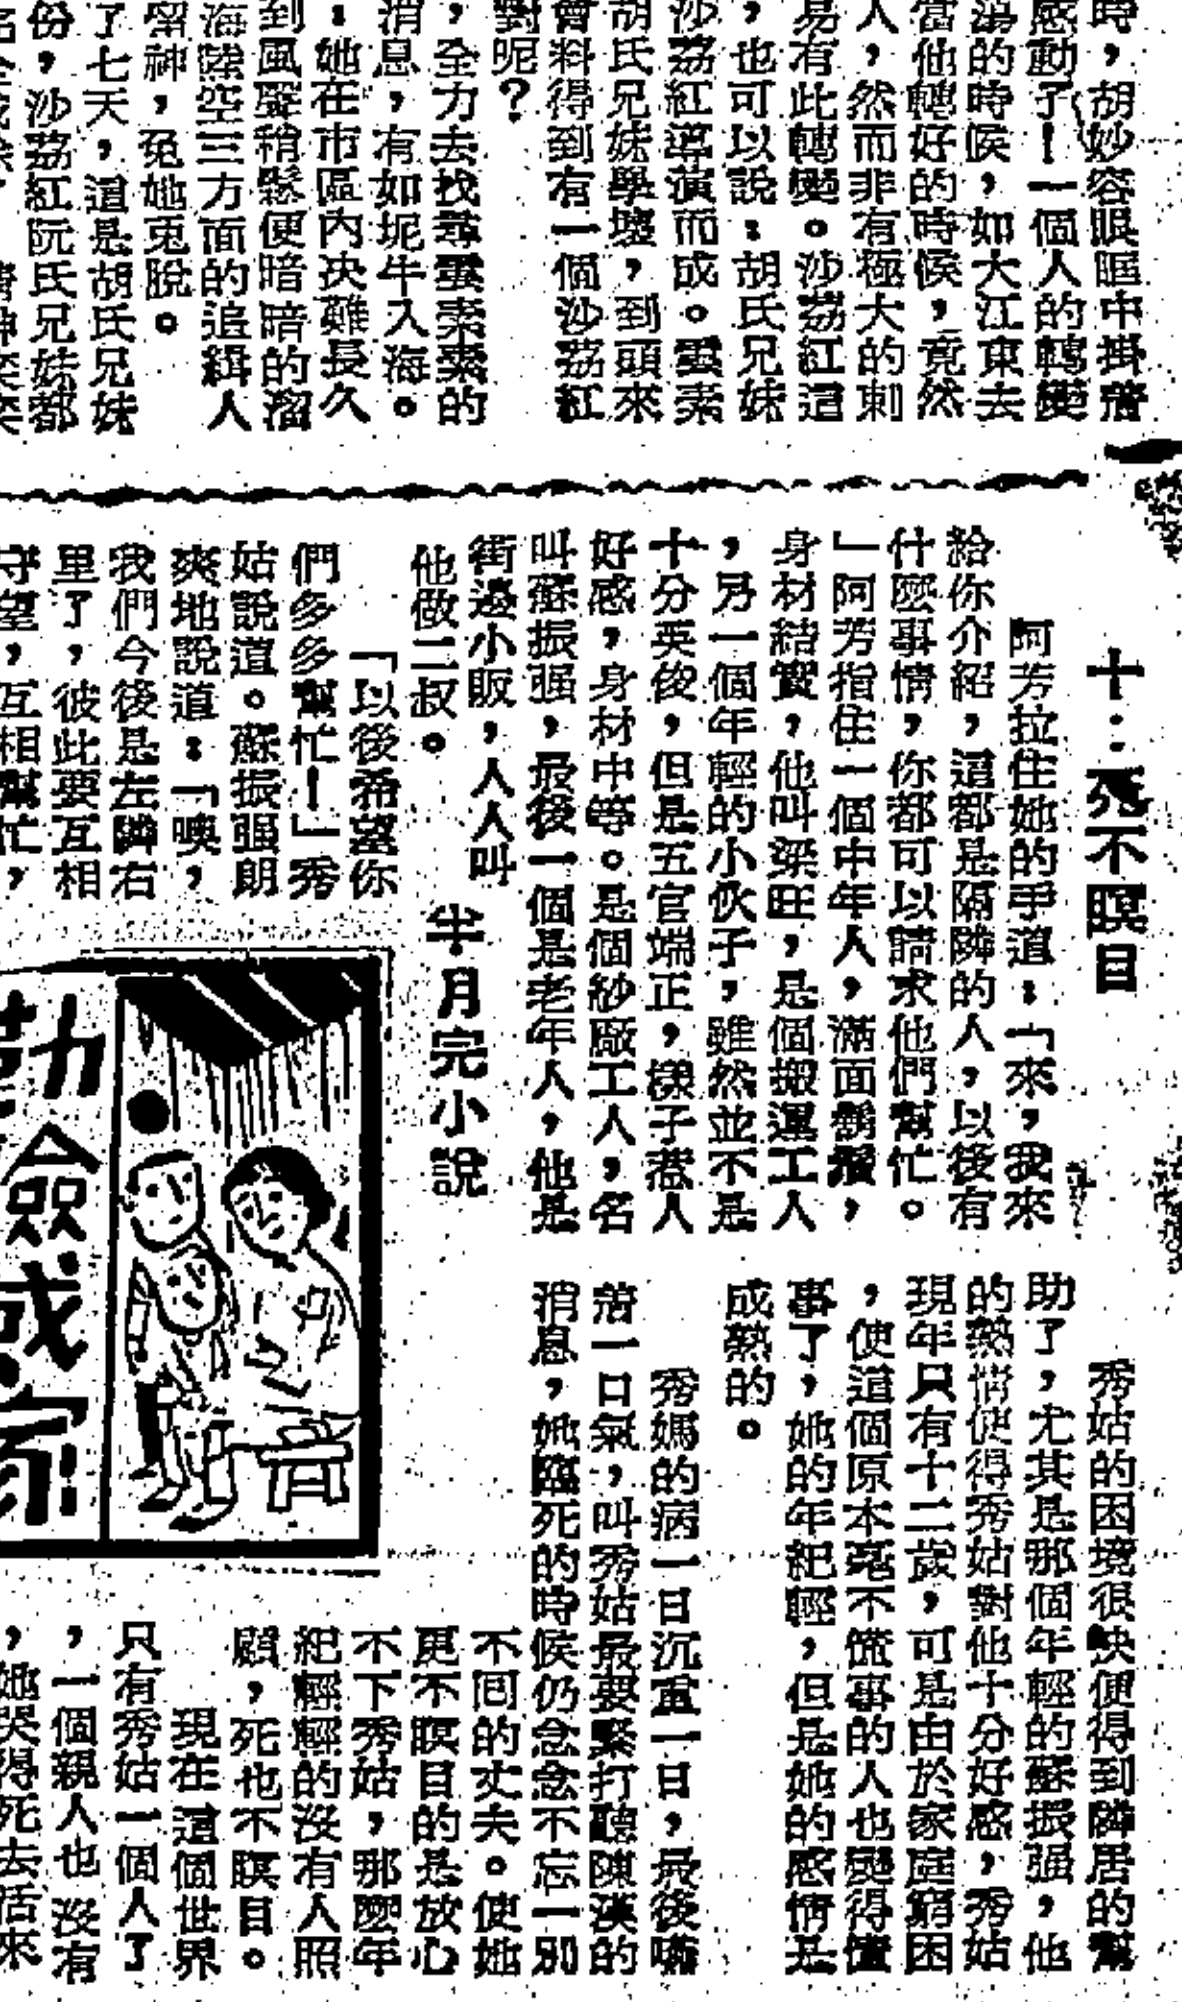 時，胡妙容眼眶中掛着
感動了！一個人的轉變
蕩的時候，如大江東去
當他轉好的時候，竟然
人，然而非有極大的刺
易有此轉變。沙荔紅這
，也可以說：胡氏兄妹
沙荔紅導演而成。雲素
胡氏兄妹學壞，到頭來
會料得到有一個沙荔紅
對呢？
，全力去找尋雲素素的
消息，有如坭牛入海。
：她在市區內决難長久
到風聲稍鬆便暗暗的溜
海陸空三方面的追緝人
留神，免她兎脫。
了七天，這是胡氏兄妹
份，沙荔紅阮氏兄妹都
十：死不瞑目
阿芳拉住她的手道：「來，我來
給你介紹，這都是隔隣的人，以後有
什麼事情，你都可以請求他們幫忙。
」阿芳指住一個中年人，滿面鬍鬚，
身材結實，他叫梁旺，是個搬運工人
，另一個年輕的小伙子，雖然並不是
十分英俊，但是五官端正，樣子惹人
好感，身材中等。是個紗廠工人，名
叫蘇振强，最後一個是老年人，他是
街邊小販，人人叫
他做二叔。
「以後希望你
們多多幫忙！」秀
姑說道。蘇振强朗
爽地說道：「噢，
我們今後是左隣右
里了，彼此要互相
守望，互相幫忙，
半月完小說
勤儉成家
秀姑的困境很快便得到隣居的幫
助了，尤其是那個年輕的蘇振强，他
的熱情使得秀姑對他十分好感，秀姑
現年只有十二歲，可是由於家庭窮困
，使這個原本毫不懂事的人也變得懂
事了，她的年紀輕，但是她的感情是
成熟的。
秀媽的病一日沉重一日，最後嚥
着一口氣，叫秀姑最要緊打聽陳漢的
消息，她臨死的時候仍念念不忘一別
不囘的丈夫。使她
更不瞑目的是放心
不下秀姑，那麼年
紀輕輕的沒有人照
顧，死也不瞑目。
現在這個世界
只有秀姑一個人了
，一個親人也沒有
，她哭得死去活來